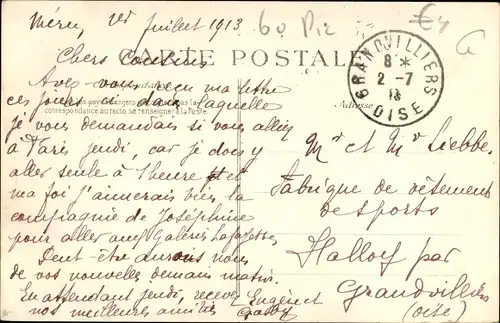 Méru, 1er Juillet 1913
60 Piz
€4
CARTE POSTALE
Chers Cousins
Avez vous reçu ma lettre
ces jours ci dans laquelle
correspondance au recto, se renseigner à la Poste
je vous demandais si vous alliez
à Paris jeudi, car je dois y
aller seule à l'heure et
ma foi j'aimerais bien la
compagnie de Joséphine
pour aller aux Galeries Lafayettes
Peut-être aurons nous
de vos nouvelles demain matin.
En attendant jeudi, recevez
nos meilleures amitiés
Eugène et
Gaby
GRANDVILLIERS
8 *
2 - 7
13
OISE
Adresse
Mr et Me Liebbe
Fabrique de vêtements
de sports
Halloy par
Grandvilliers
(Oise)